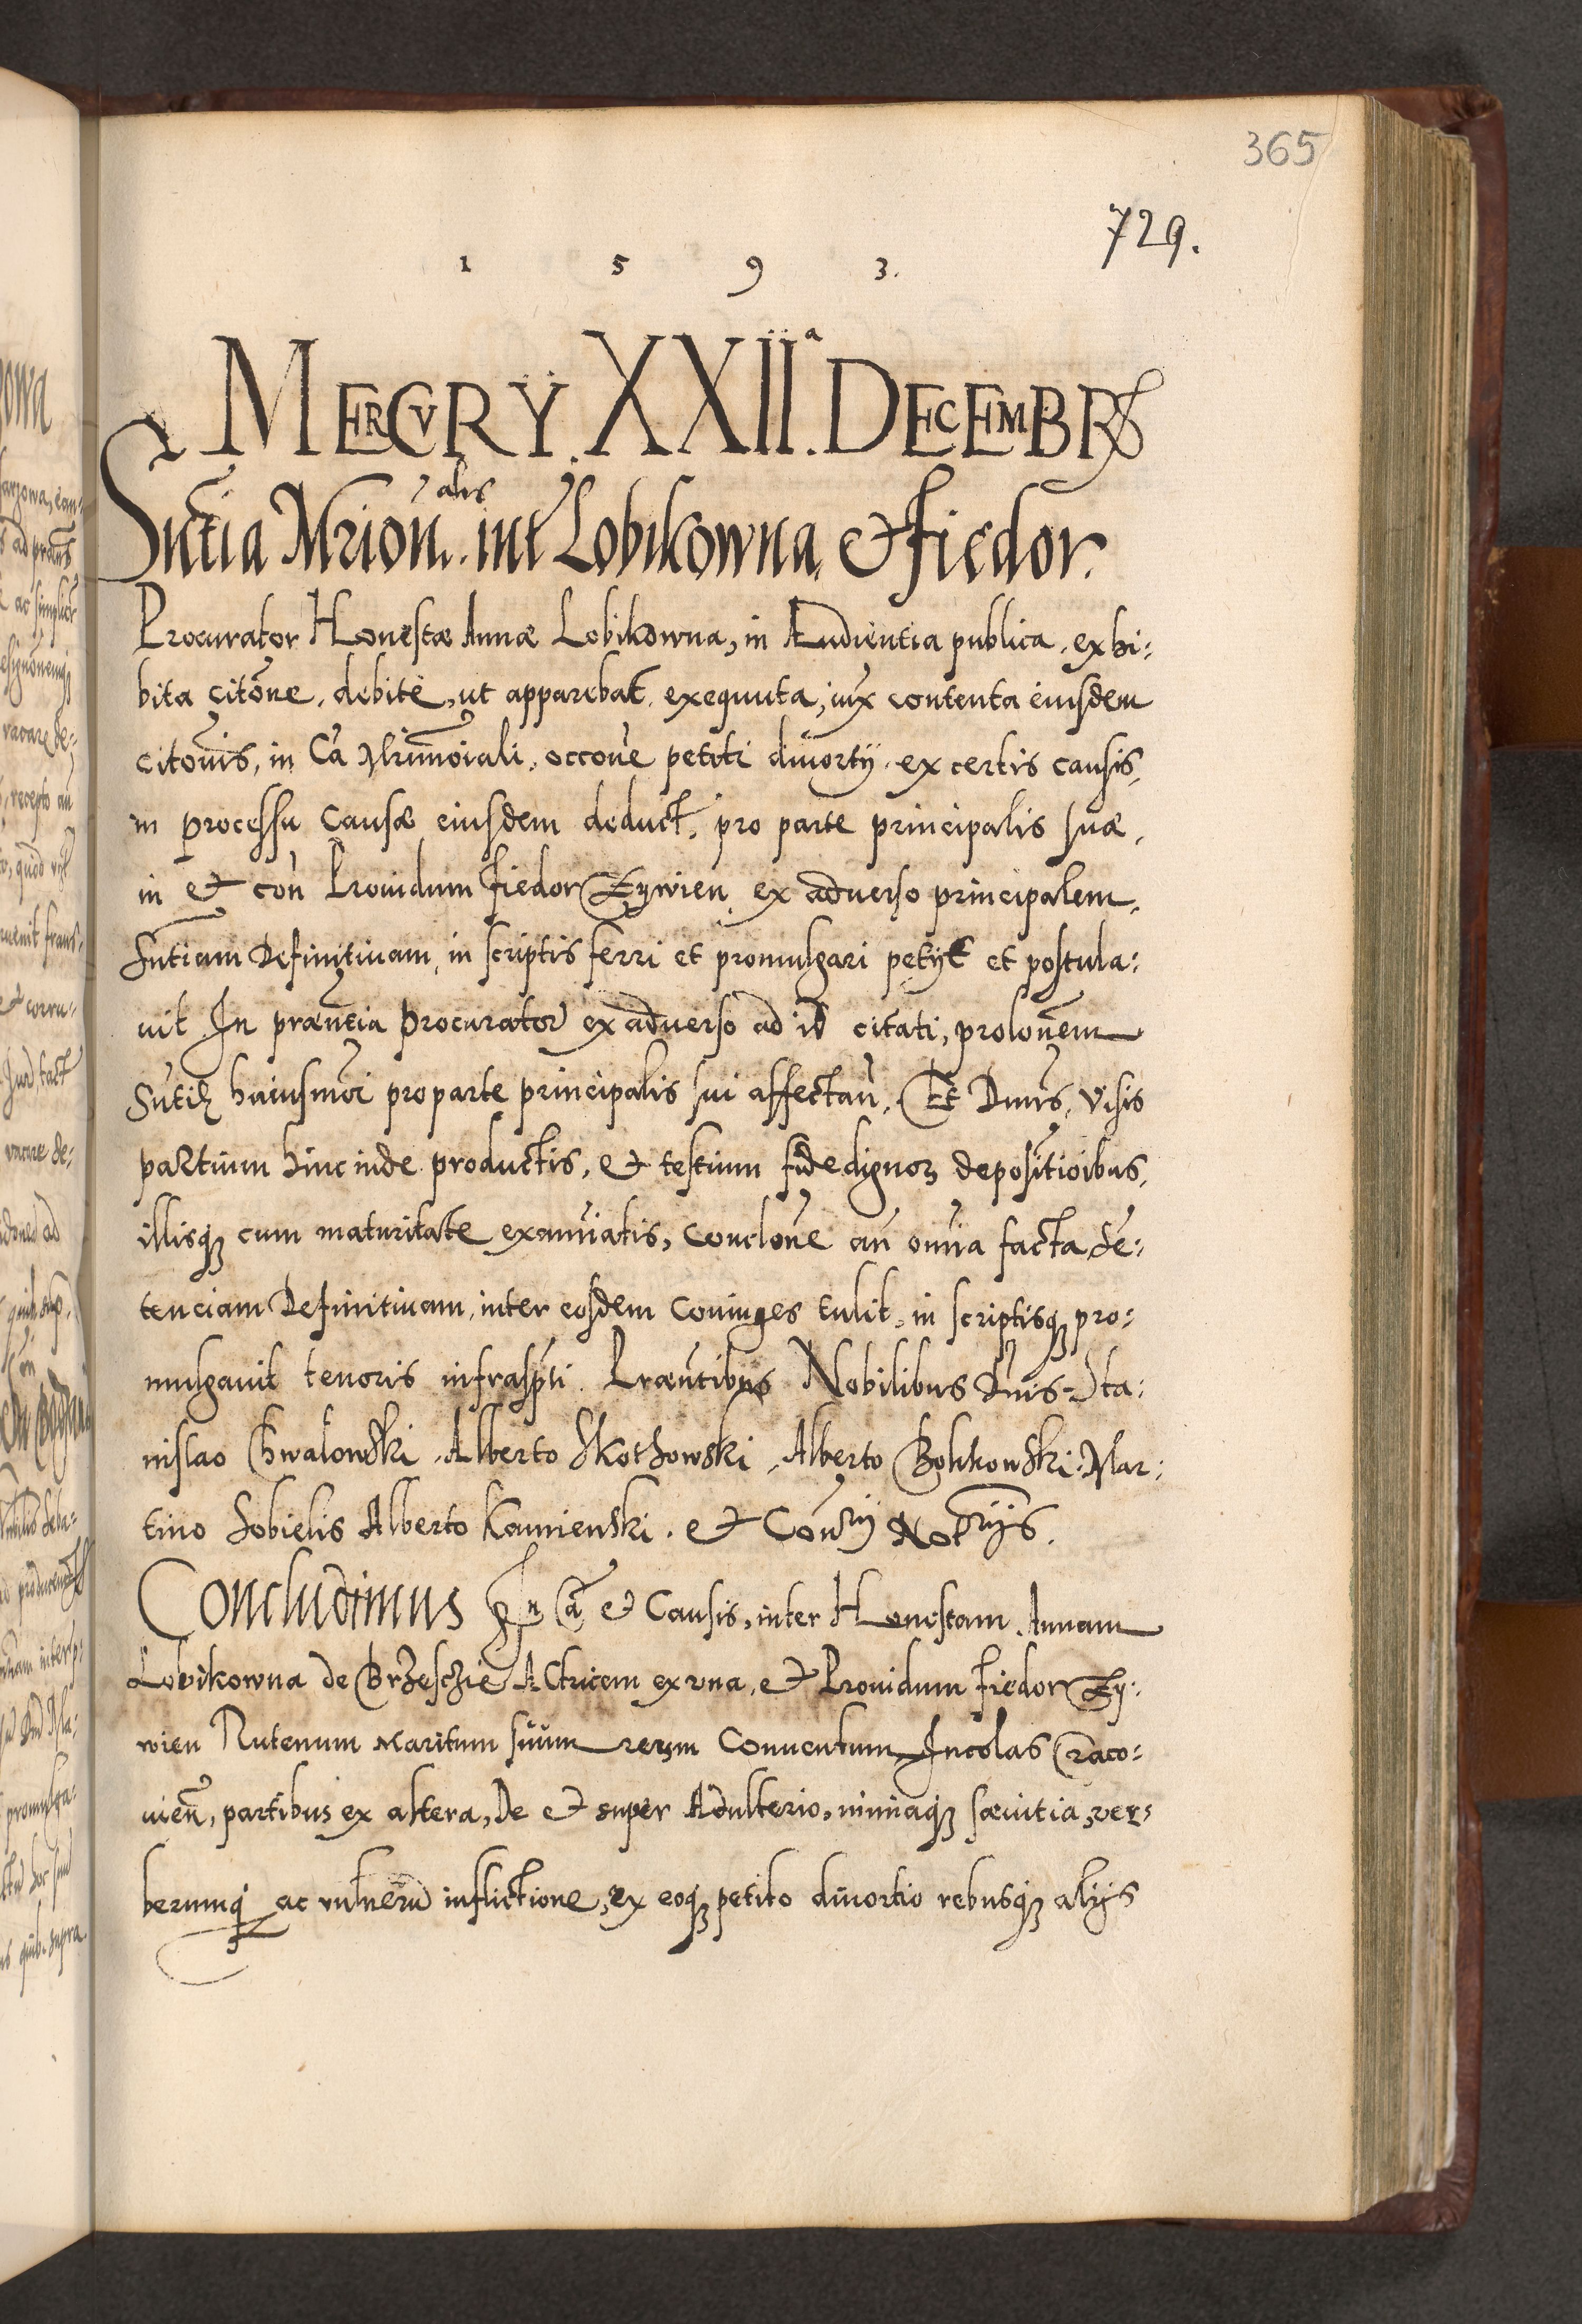 365
729.
1 5 9 3.
MERCVRY. XXIIª. DECEMBRS
Sntia Mrioñ.alis int Lobikowna et Fiedor.
Procurator Honestæ Annæ Lobikowna, in Audientia publica, exhi:
bita citõne, debite, ut apparebat exequuta, iux contenta eiusdem
citõnis, in Ca Mrimoiali, occõne petiti diuortÿ ex certis causis,
in processu causæ eiusdem deduct. pro parte principalis suæ,
in et con Prouidum Fiedor Zywien ex aduerso principalem,
Sntiam Definitiuam, in scriptis ferri et promulgari petÿt et postula:
uit In præntia Procurator ex aduerso ad id citati, prolonem
Sntię huiusmoi pro parte principalis sui affectan. Et Dnus, Visis
partium hinc inde productis, et testium fide dignoꝝ depositioibus,
illisqꝫ cum maturitate examinatis, conclone an omnia facta, Se:
tenciam Definitiuam, inter eosdem Coniuges tulit, in scriptisqꝫ pro:
mulgauit tenoris infraspti. Præntibus Nobilibus Dnis Sta:
nislao Chwalowski, Alberto Skothowski, Alberto Bolikowski, Mar:
tino Sobielis Alberto Kamienski. et Conrÿ Notrÿs.
Concludimus In Ca et Causis, inter Honestam Annam
Lobikowna de Brzeschie Actricem ex una, et Prouidum Fiedor Zy:
wien Rutenum Maritum suum reum Conuentum Incolas Craco:
uien, partibus ex altera, De et super Adulterio, nimiaqꝫ sæuitia, ver:
berumqꝫ ac vulneru inflictione, ex eoqꝫ petito diuortio rebusqꝫ alÿs